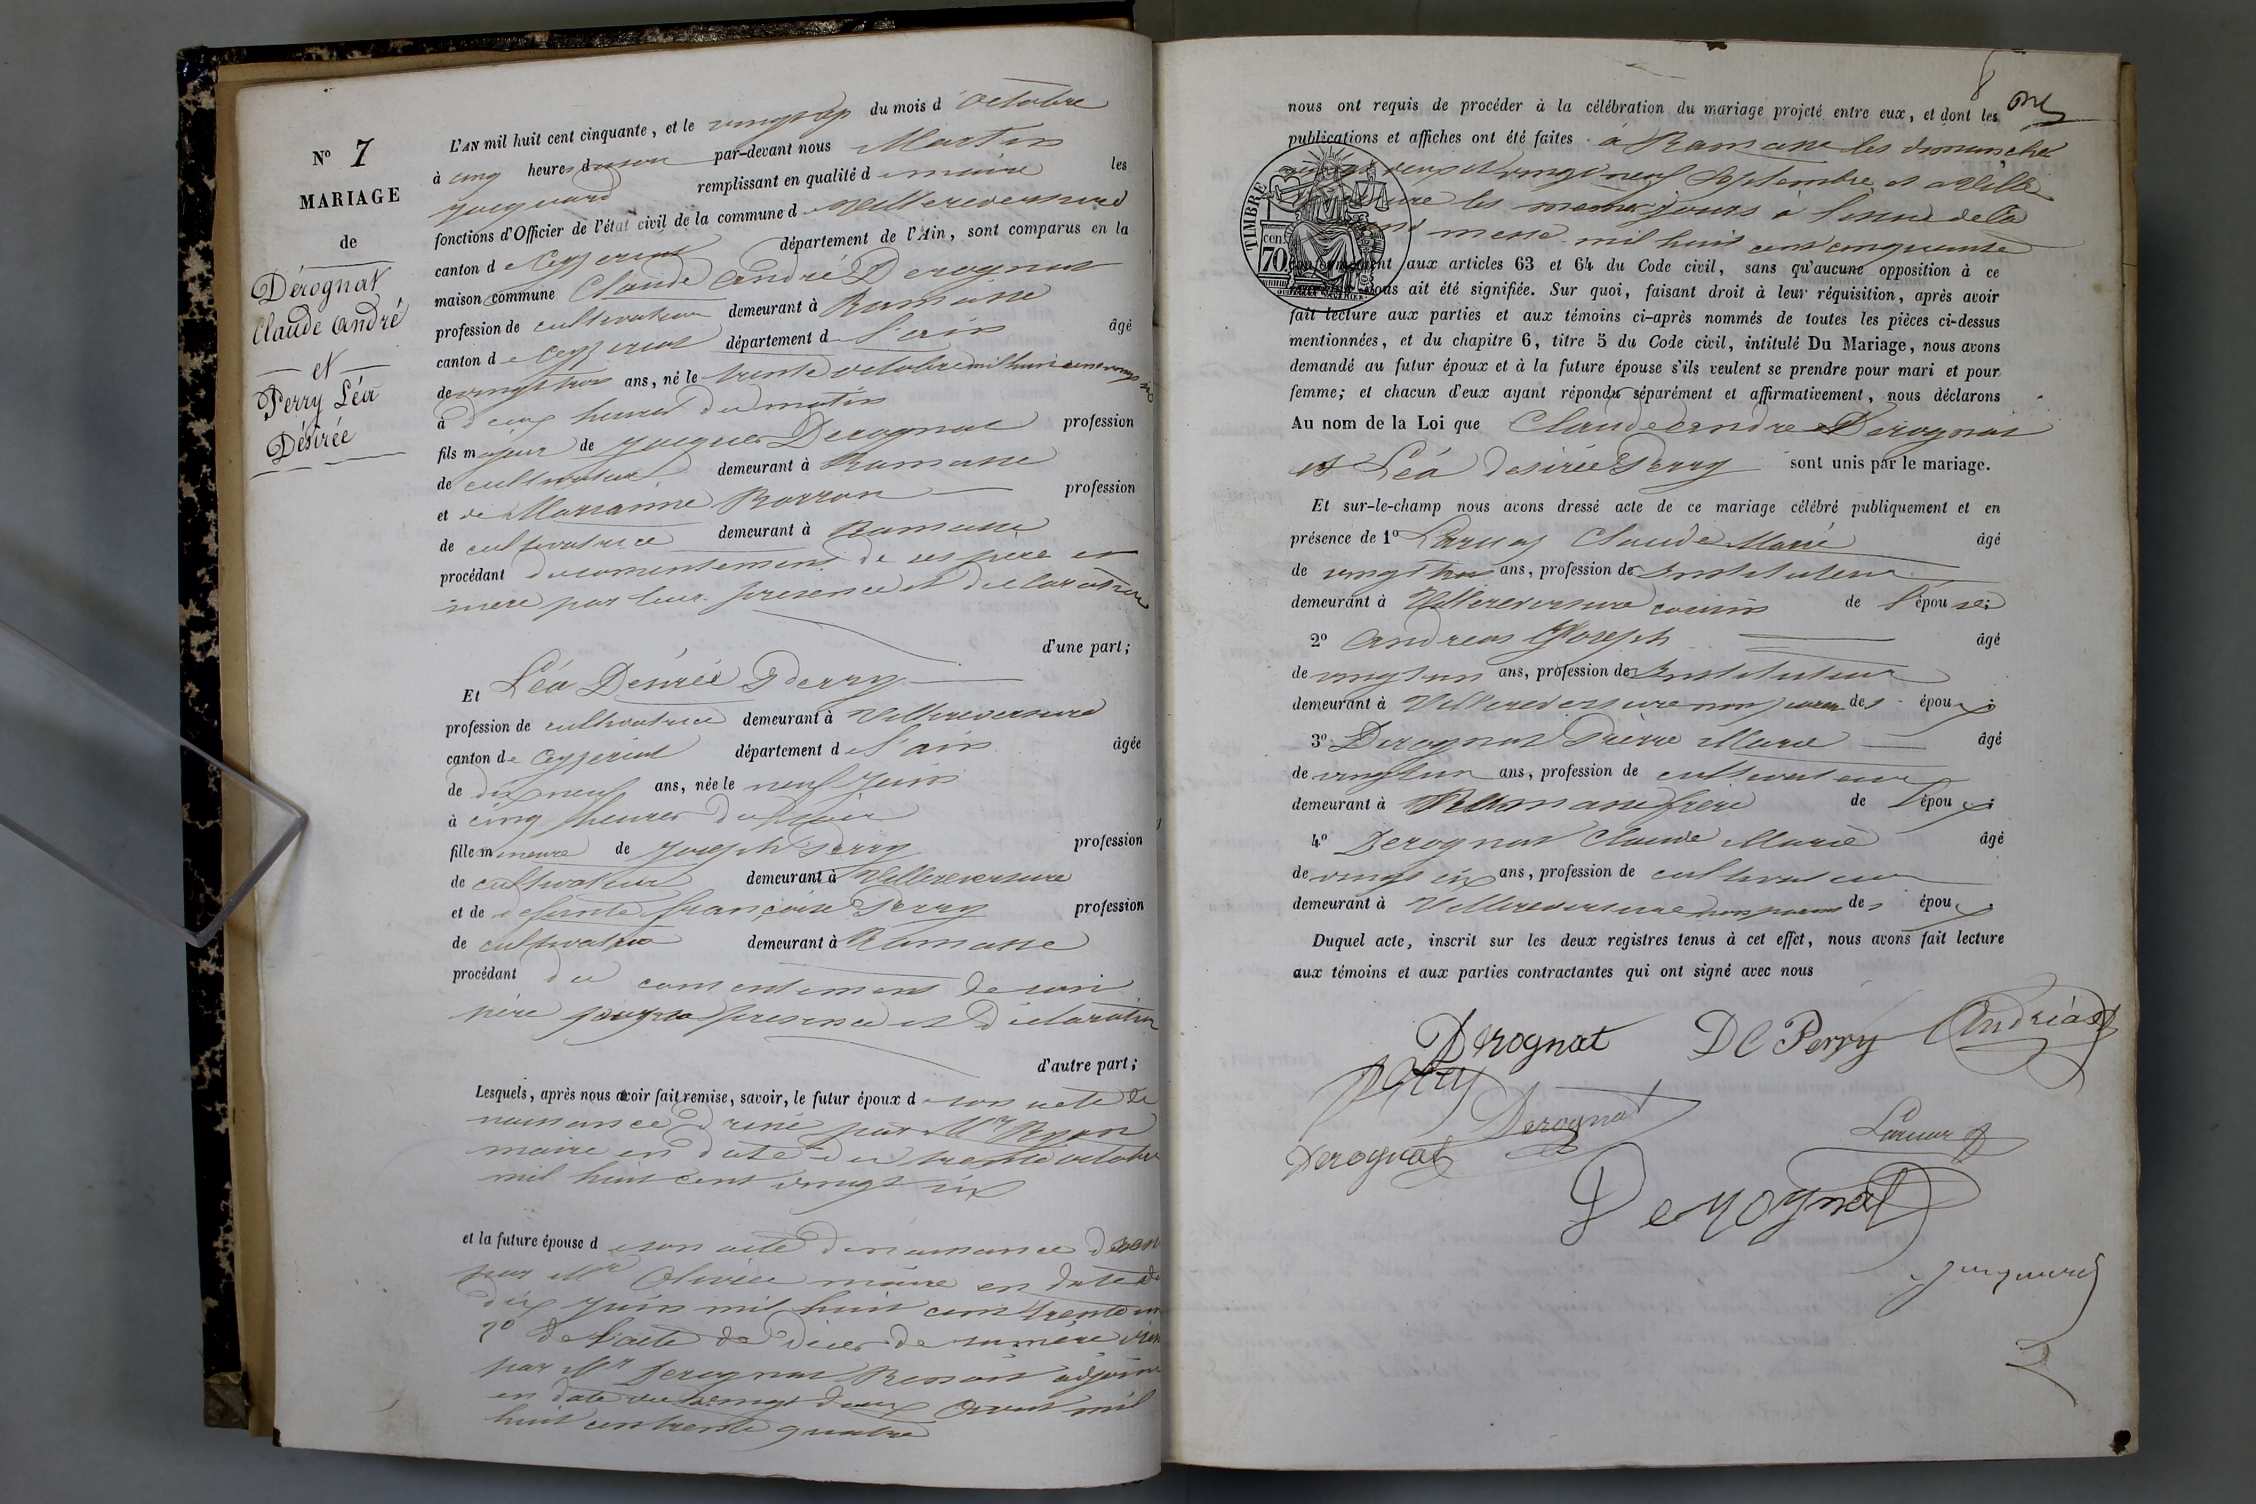 N° 7
MARIAGE
de
Dérognat
Claude André
et
Perry Léa
Désirée
L'AN mil huit cent cinquante, et le vingt sep du mois d octobre
à cinq heures du soir par-devant nous Martin
Jacquard remplissant en qualité de maire les
fonctions d'Officier de l'état civil de la commune de Villereversure
canton de Ceyzeriat département de l'Ain, sont comparus en la
maison commune Claude André Derognat
profession de cultivateur demeurant à Ramasse
canton de Ceyzeriat département d l'ain âgé
de vingt trois ans, né le trente octobre mil huit cent vingt six
à deux heures du matin
fils majeur de Jacques Derognat profession
de cultivateur demeurant à Ramasse
et de Marianne Borron profession
de cultivatrice demeurant à Ramasse
procédant du consentement de ses père et
mère par leur présence et déclaration
d'une part;
Et Léa Désirée Perry
profession de cultivatrice demeurant à Villereversure
canton de Ceyzeriat département d l'ain âgée
de dix neuf ans, née le neuf juin
à cinq heures du soir
fille mineure de Joseph Perry profession
de cultivateur demeurant à Villereversure
et de défunte françoise Perry profession
de cultivatrice demeurant à Ramasse
procédant du consentement de son
père par sa présence et déclaration
d'autre part;
Lesquels, après nous avoir fait remise, savoir, le futur époux d son acte de
naissance par Mr
maire en date du trente octobre
mil huit cent vingt six
et la future épouse d son acte de naissance
par Mr Olivier maire en date du
dix juin mil huit cent trente un
2° de l'acte de décès de sa mère
par Mr Derognat Benoit adjoint
en date du vingt deux Avout mil
huit cent trente quatre
8
nous ont requis de procéder à la célébration du mariage projeté entre eux, et dont les
publications et affiches ont été faites à Ramasse les dimanches
vingt deux et vingt neuf Septembre et à Ville
les mêmes jours à l'issue de la
messe mil huit cent cinquante
TIMBRE
cen.
70
conformément aux articles 63 et 64 du Code civil, sans qu'aucune opposition à ce
nous ait été signifiée. Sur quoi, faisant droit à leur réquisition, après avoir
fait lecture aux parties et aux témoins ci-après nommés de toutes les pièces ci-dessus
mentionnées, et du chapitre 6, titre 5 du Code civil, intitulé Du Mariage, nous avons
demandé au futur époux et à la future épouse s'ils veulent se prendre pour mari et pour
femme; et chacun d'eux ayant répondu séparément et affirmativement, nous déclarons
Au nom de la Loi que Claude andré Derognat
et Léa désirée Perry sont unis par le mariage.
Et sur-le-champ nous avons dressé acte de ce mariage célébré publiquement et en
présence de 1° Claude Marie âgé
de vingt trois ans, profession de Instituteur
demeurant à Villereversure cousin de l'épouse;
2° Andréas Joseph âgé
de vingt un ans, profession de Instituteur
demeurant à Villereversure non parent des époux;
3° Derognat Pierre Marie âgé
de vingt un ans, profession de cultivateur
demeurant à Ramasse frère de l'époux;
4° Derognat Claude Marie âgé
de vingt six ans, profession de cultivateur
demeurant à Villereversure non parent des époux.
Duquel acte, inscrit sur les deux registres tenus à cet effet, nous avons fait lecture
aux témoins et aux parties contractantes qui ont signé avec nous
Derognat D L Perry Andréas
Perry
Derognat
Derognat
Derognat
Jacquard